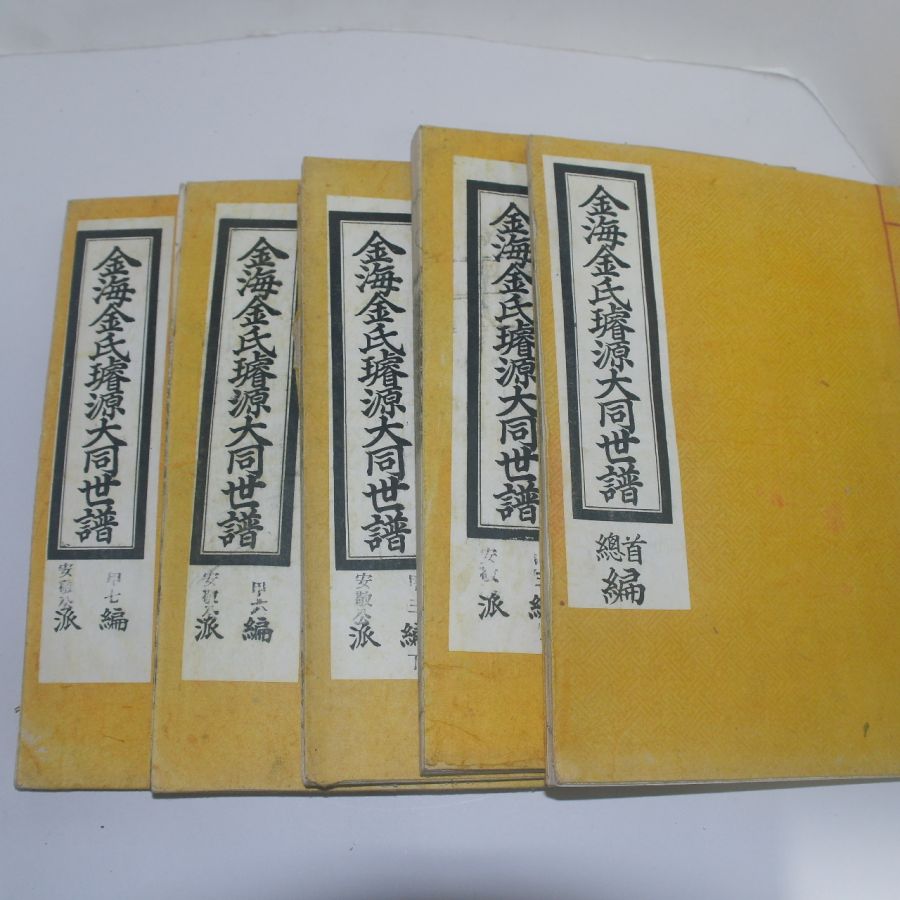 金海金氏璿源大同世譜
首
總
編
金海金氏璿源大同世譜
派
金海金氏璿源大同世譜
安敬公派
編
金海金氏璿源大同世譜
甲六編
派
金海金氏璿源大同世譜
甲七編
派